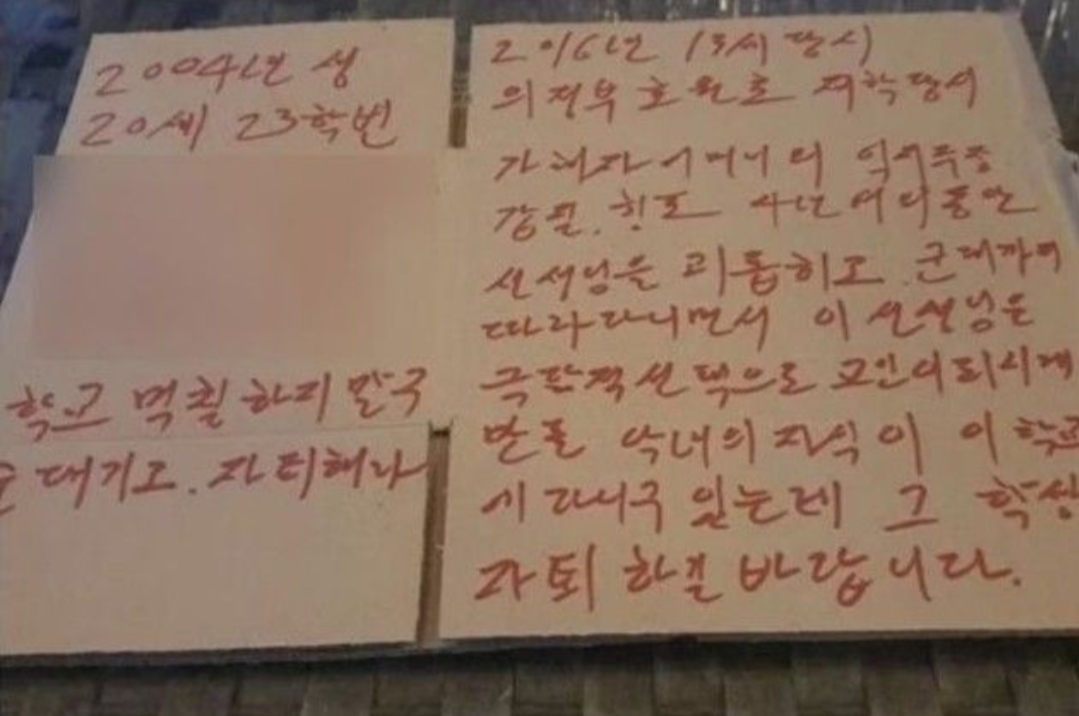 2004년 생
20세 23학번
학교 먹칠하지 말구
대기고. 자퇴해라
2016년 13세 당시
의정부 호원초 재학당시
가해자 어머니의 억어주장
강필. 횡포 4년여의 동안
선생님을 괴롭히고. 군대까지
따라다니면서 이 선생님은
극단적선택으로 고인이되시게
만든 악녀의 자식이 이 학교
에 다니구 있는데 그 학생
자퇴 하길 바랍니다.